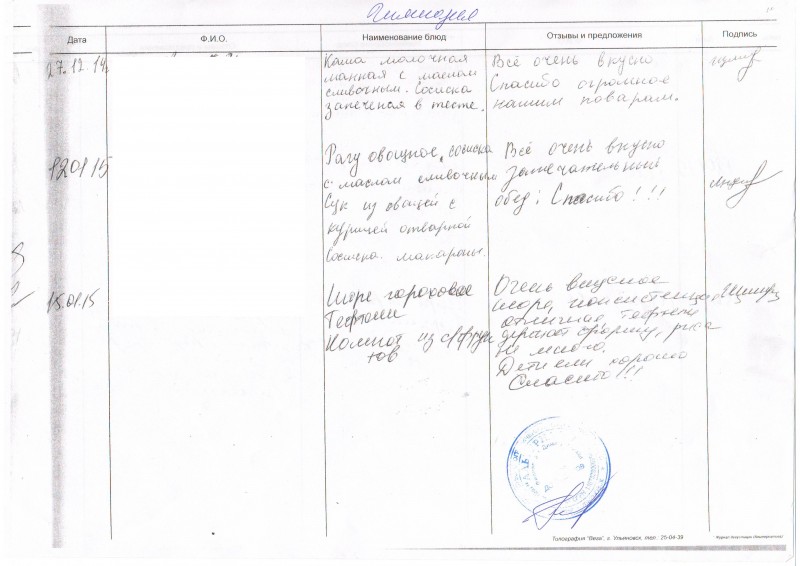 Гимназия
Дата Ф.И.О. Наименование блюд Отзывы и предложения Подпись
27.12.14 Каша молочная Всё очень вкусно
манная с маслом Спасибо огромное
сливочным. Сосиска нашим поварам.
запеченая в тесте.
12 01 15 Рагу овощное, сосиска Всё очень вкусно
с маслом сливочным замечательный
Суп из овощей с обед! Спасибо!!!
курицей отварной
Сосиска. макароны.
15.01.15 Пюре гороховое Очень вкусное
Тефтели пюре, консистенция
Компот из фрук отличная, тефтели
тов держат форму, риса
не много.
Дети ели хорошо
Спасибо!!!
Типография "Вега", г. Ульяновск, тел.: 25-04-39